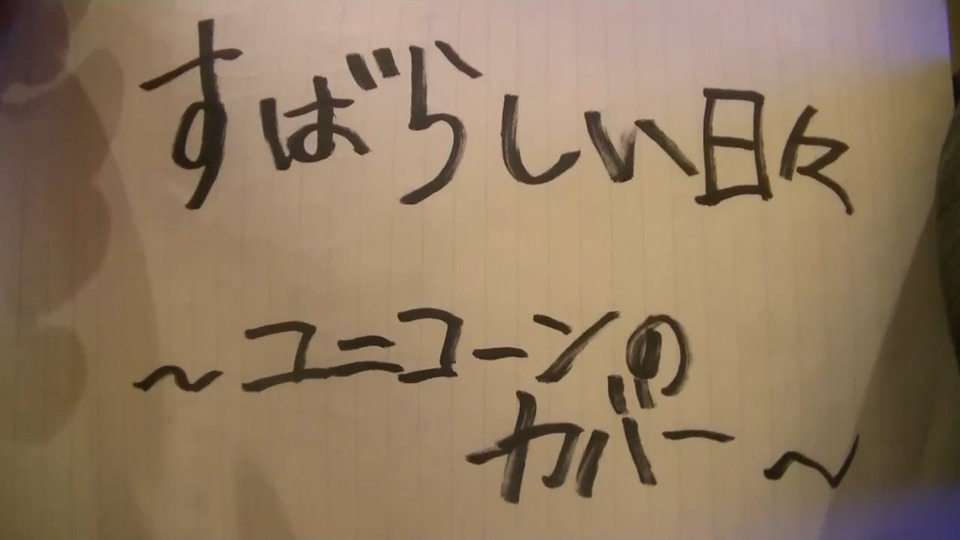 すばらしい日々
～ユニコーンの
カバー～